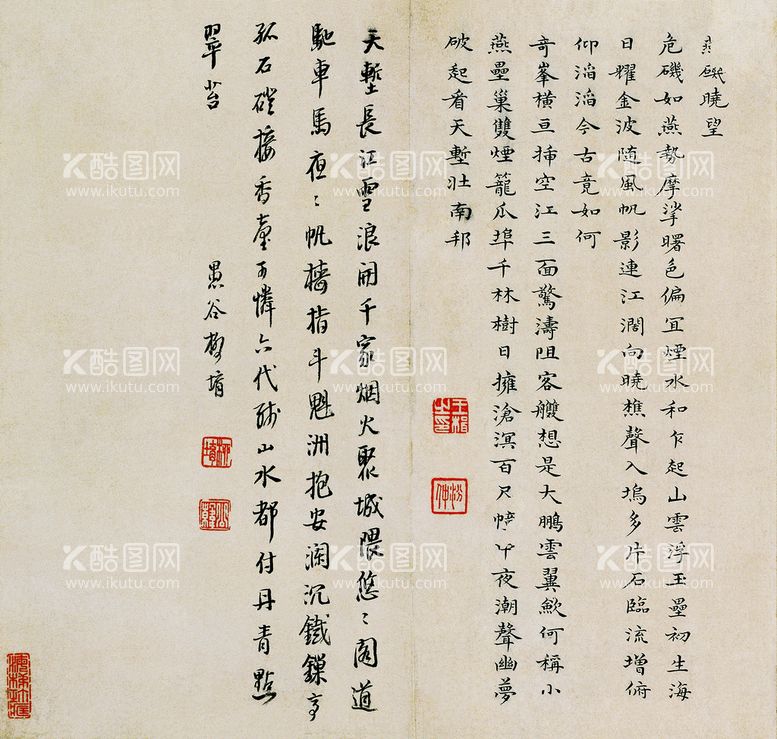 燕磯曉望
危磯如燕勢摩挲曙色偏宜煙水和乍起山雲浮玉壘初生海
日耀金波随風帆影連江濶向曉樵聲入塢多片石臨流增俯
仰滔滔今古竟如何
奇峯橫亘揷空江三面驚濤阻客艭想是大鵬雲翼歛何稱小
燕壘巢雙煙籠瓜埠千林樹日擁滄溟百尺幢半夜潮聲幽夢
破起看天塹壯南邦
天塹長江雪浪開千家烟火聚城隈悠〻閣道
馳車馬夜〻帆檣指斗魁洲抱安瀾沉鐵鏁亭
孤石磴接香臺可憐六代殘山水都付丹青點
翠苔
愚谷
酷图网
www.ikutu.com